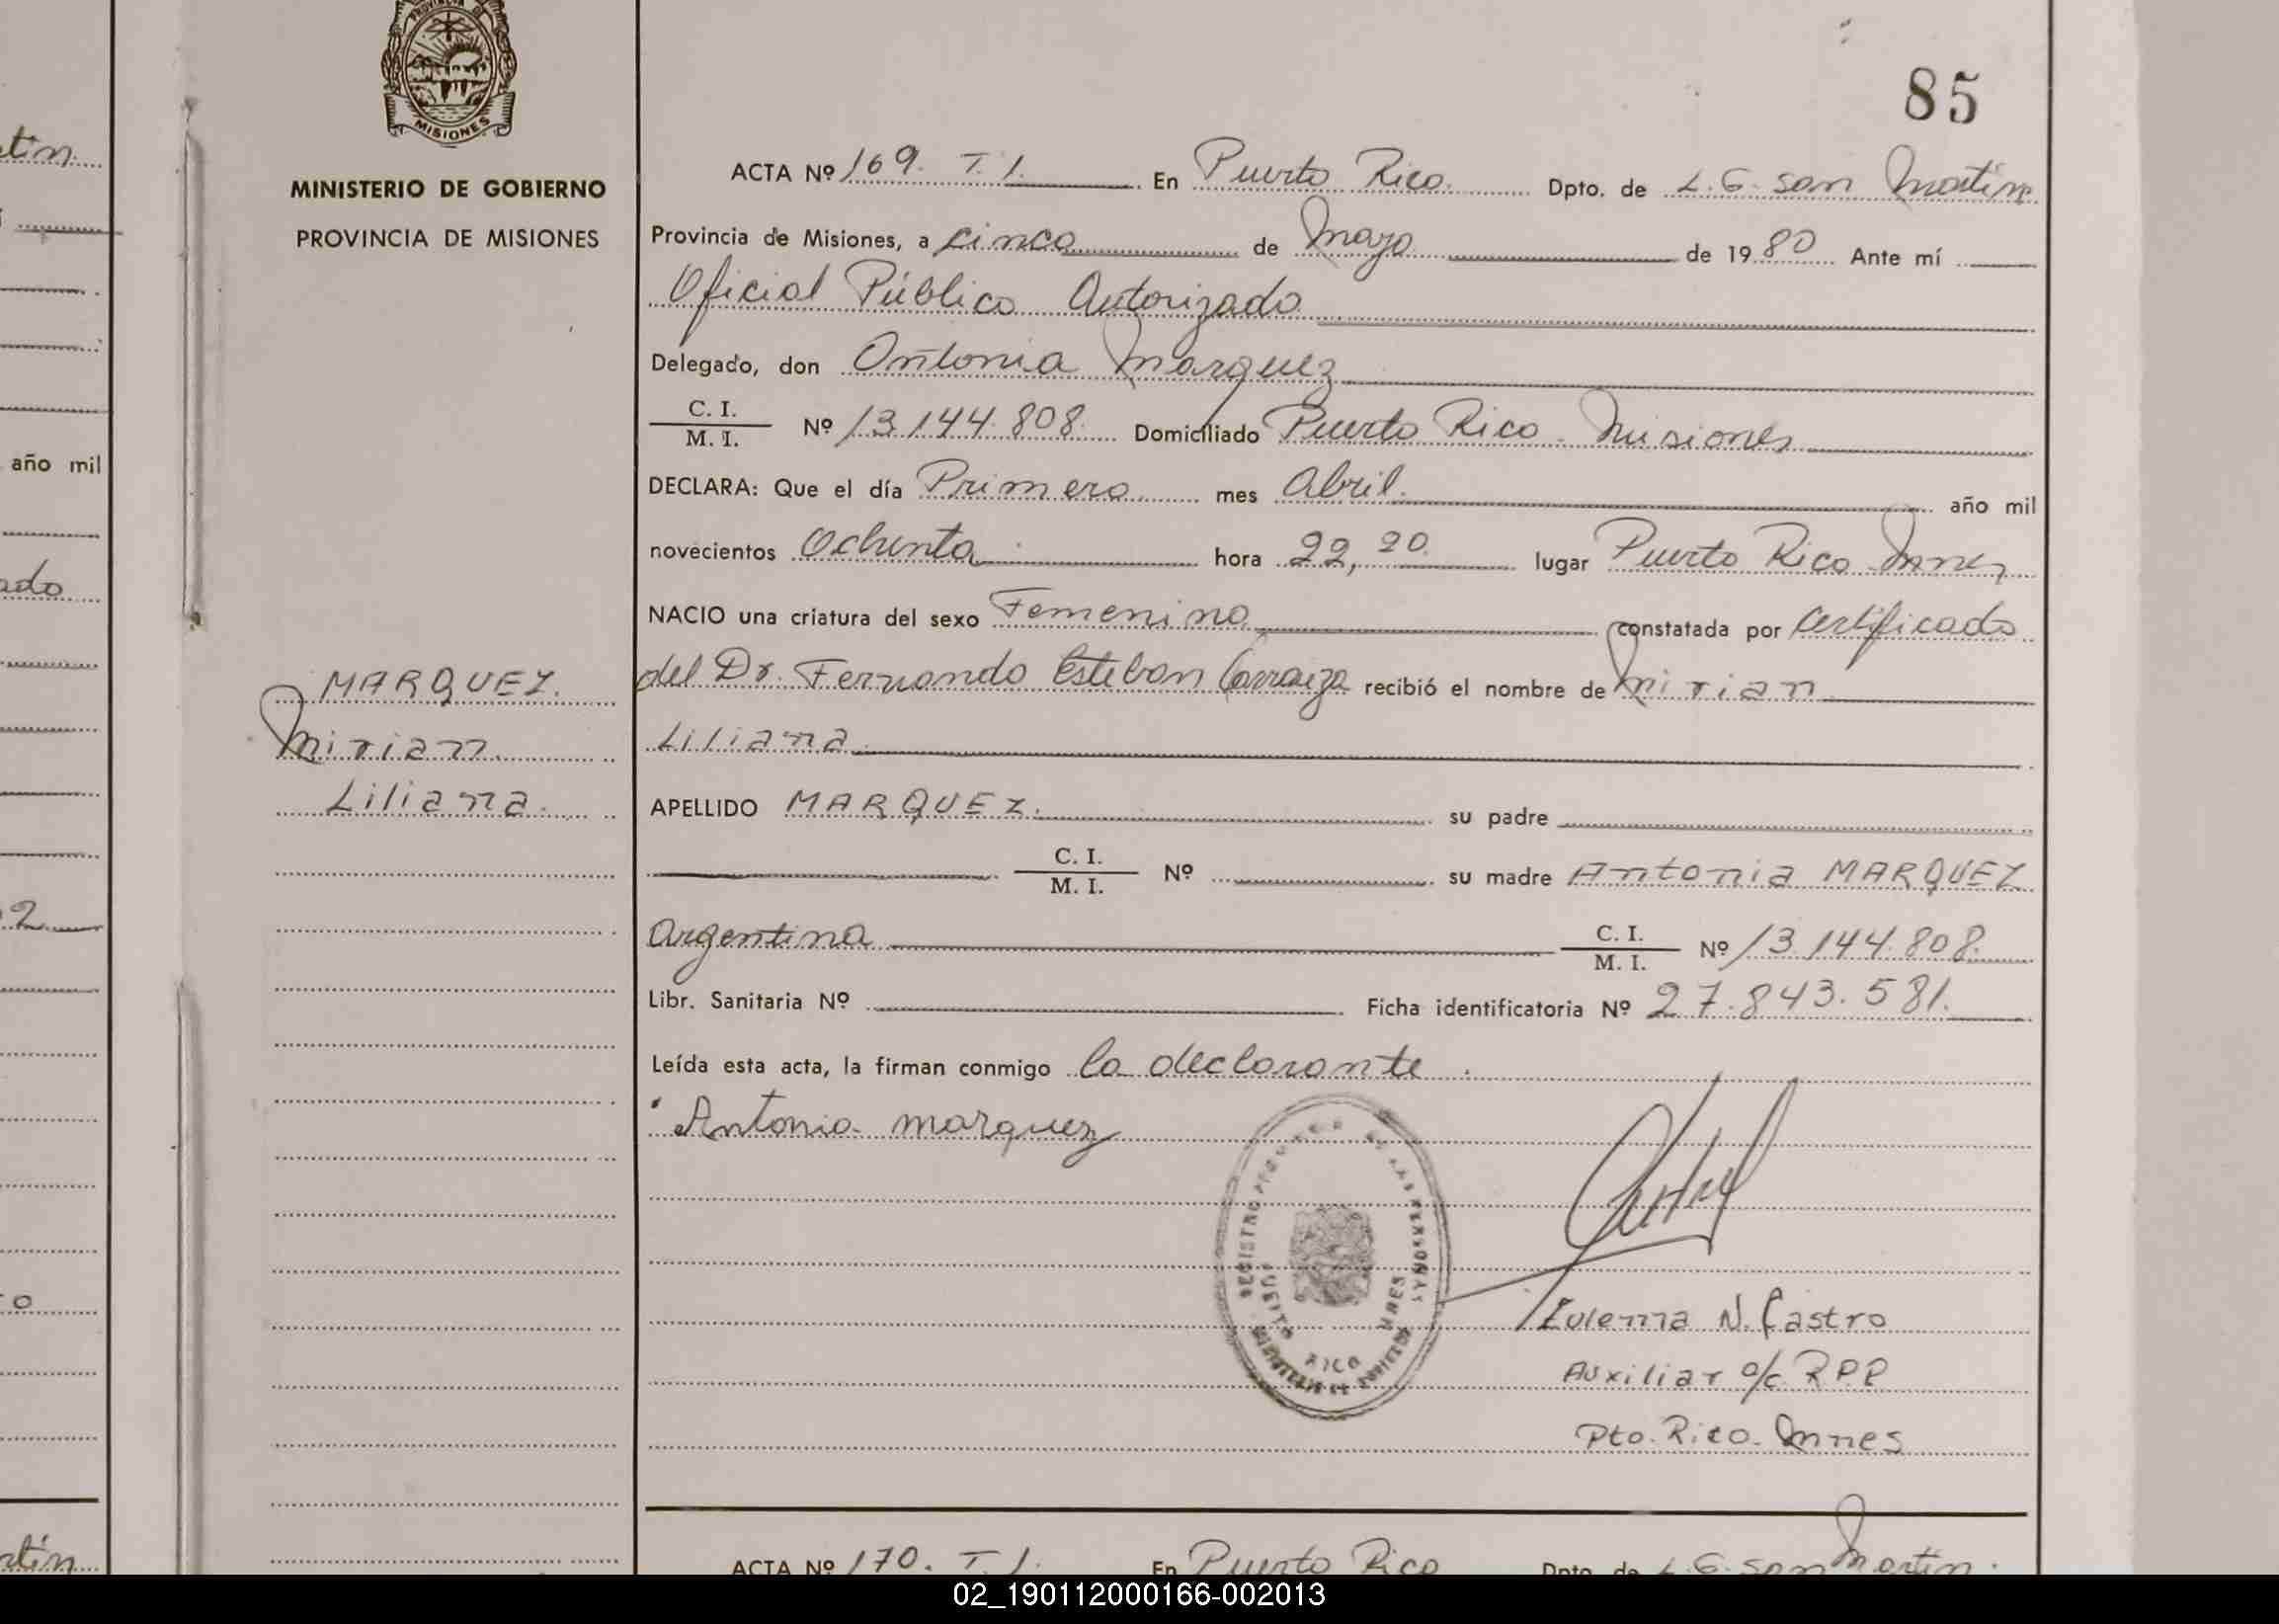 85
PROVINCIA DE
MISIONES
MINISTERIO DE GOBIERNO
PROVINCIA DE MISIONES
MARQUEZ.
Mirian
Liliana.
ACTA Nº 169. T. 1. En Puerto Rico. Dpto. de L. G. San Martín
Provincia de Misiones, a cinco de Mayo de 1980 Ante mí
Oficial Público Autorizado
Delegado, don Antonia Marquez
C. I.
M. I. Nº 13.144.808. Domiciliado Puerto Rico - Misiones
DECLARA: Que el día Primero mes Abril. año mil
novecientos Ochenta hora 22,20. lugar Puerto Rico Mnes
NACIO una criatura del sexo Femenino constatada por Certificado
del Dr. Fernando Esteban Carranza recibió el nombre de Mirian
Liliana.
APELLIDO MARQUEZ. su padre
C. I.
M. I. Nº su madre Antonia MARQUEZ
Argentina C. I.
M. I. Nº 13.144.808.
Libr. Sanitaria Nº Ficha identificatoria Nº 27.843.581.
Leída esta acta, la firman conmigo la declarante.
Antonia marquez
REGISTRO DE LAS PERSONAS
PUERTO RICO MNES
Zulema N. Castro
Auxiliar o/c RPP
Pto. Rico. Mnes
ACTA Nº 170. T. 1. En Puerto Rico Dpto. de L. G. San Martin.
tín
año mil
ado
2
o
rtín
02_190112000166-002013